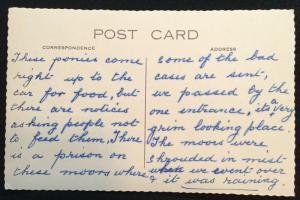 POST CARD
CORRESPONDENCE
These ponies come
right up to the
car for food, but
there are notices
asking people not
to feed them. There
is a prison on
these moors where
ADDRESS
some of the bad
cases are sent,
we passed by the
one entrance, its a very
grim looking place.
The moors were
shrouded in mist
when we went over
& it was raining.